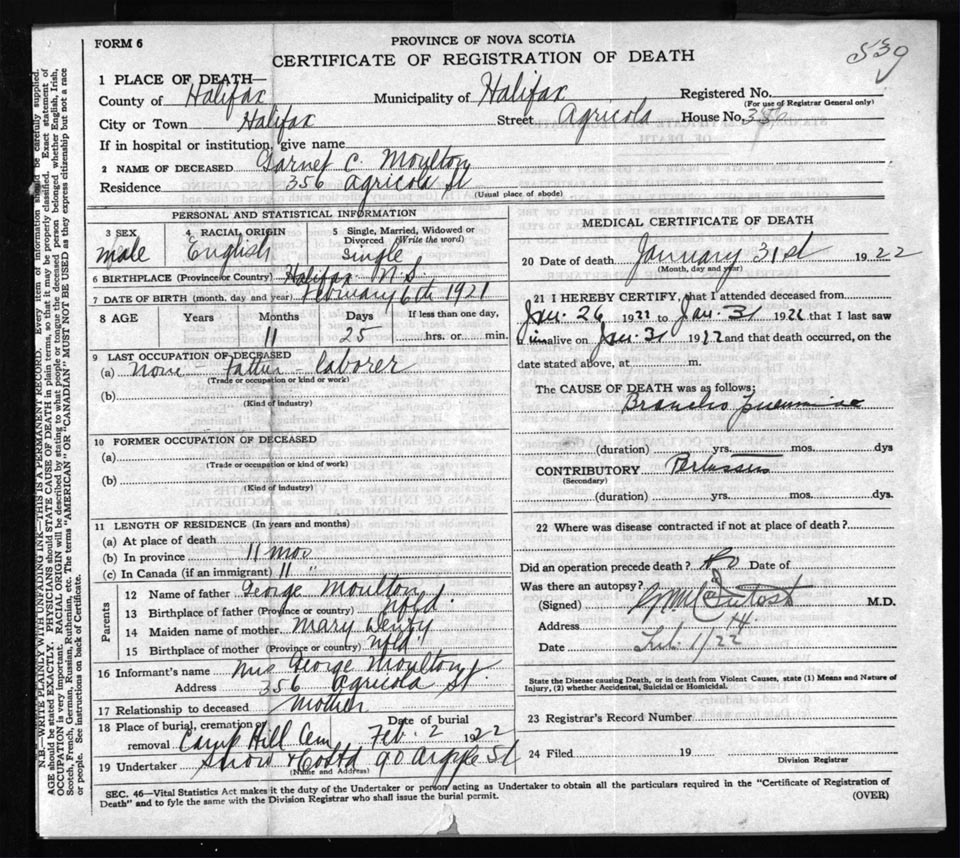 539
FORM 6
PROVINCE OF NOVA SCOTIA
CERTIFICATE OF REGISTRATION OF DEATH
1 PLACE OF DEATH—
County of Halifax Municipality of Halifax Registered No.
(For use of Registrar General only)
City or Town Halifax Street Agricola House No.
If in hospital or institution, give name
2 NAME OF DECEASED Garnet C. Moulton
Residence 356 Agricola St
(Usual place of abode)
PERSONAL AND STATISTICAL INFORMATION
3 SEX male
4 RACIAL ORIGIN English
5 Single, Married, Widowed or Divorced (Write the word) Single
6 BIRTHPLACE (Province or Country) Halifax N.S.
7 DATE OF BIRTH (month, day and year) February 6th 1921
8 AGE Years Months Days If less than one day,
11 25 hrs. or min.
9 LAST OCCUPATION OF DECEASED
(a) None - Father - laborer
(Trade or occupation or kind or work)
(b)
(Kind of industry)
10 FORMER OCCUPATION OF DECEASED
(a)
(Trade or occupation or kind of work)
(b)
(Kind of industry)
11 LENGTH OF RESIDENCE (In years and months)
(a) At place of death
(b) In province 11 mos
(c) In Canada (if an immigrant) 11 "
Parents
12 Name of father George Moulton
13 Birthplace of father (Province or country) Nfld.
14 Maiden name of mother Mary
15 Birthplace of mother (Province or country) Nfld
16 Informant's name Mrs George Moulton
Address 356 Agricola St.
17 Relationship to deceased Mother
18 Place of burial, cremation or removal Camp Hill Cem Date of burial Feb. 2 1922
19 Undertaker Snow & Co Ltd 90 Argyle St
(Name and Address)
MEDICAL CERTIFICATE OF DEATH
20 Date of death January 31st 1922
(Month, day and year)
21 I HEREBY CERTIFY, that I attended deceased from
Jan. 26 1922 to Jan. 31 1922 that I last saw
him alive on Jan. 31 1922 and that death occurred, on the
date stated above, at m.
The CAUSE OF DEATH was as follows:
Broncho pneumonia
(duration) yrs. mos. dys
CONTRIBUTORY Pertussis
(Secondary)
(duration) yrs. mos. dys.
22 Where was disease contracted if not at place of death?
Did an operation precede death? no Date of
Was there an autopsy?
(Signed) M.D.
Address
Date Feb. 1/22
State the Disease causing Death, or in death from Violent Causes, state (1) Means and Nature of
Injury, (2) whether Accidental, Suicidal or Homicidal.
23 Registrar's Record Number
24 Filed 19
Division Registrar
SEC. 46—Vital Statistics Act makes it the duty of the Undertaker or person acting as Undertaker to obtain all the particulars required in the "Certificate of Registration of
Death" and to fyle the same with the Division Registrar who shall issue the burial permit. (OVER)
N.B.—WRITE PLAINLY WITH UNFADING INK—THIS IS A PERMANENT RECORD. Every item of information should be carefully supplied.
AGE should be stated EXACTLY. PHYSICIANS should STATE CAUSE OF DEATH in plain terms, so that it may be properly classified. Exact statement of
OCCUPATION is very important. RACIAL ORIGIN will be described by stating to what people or tongue the deceased person belonged whether English, Irish,
Scotch, French, German, Russian, Ruthenian, etc. The terms "AMERICAN" OR "CANADIAN" MUST NOT BE USED as they express citizenship but not a race
or people. See instructions on back of Certificate.